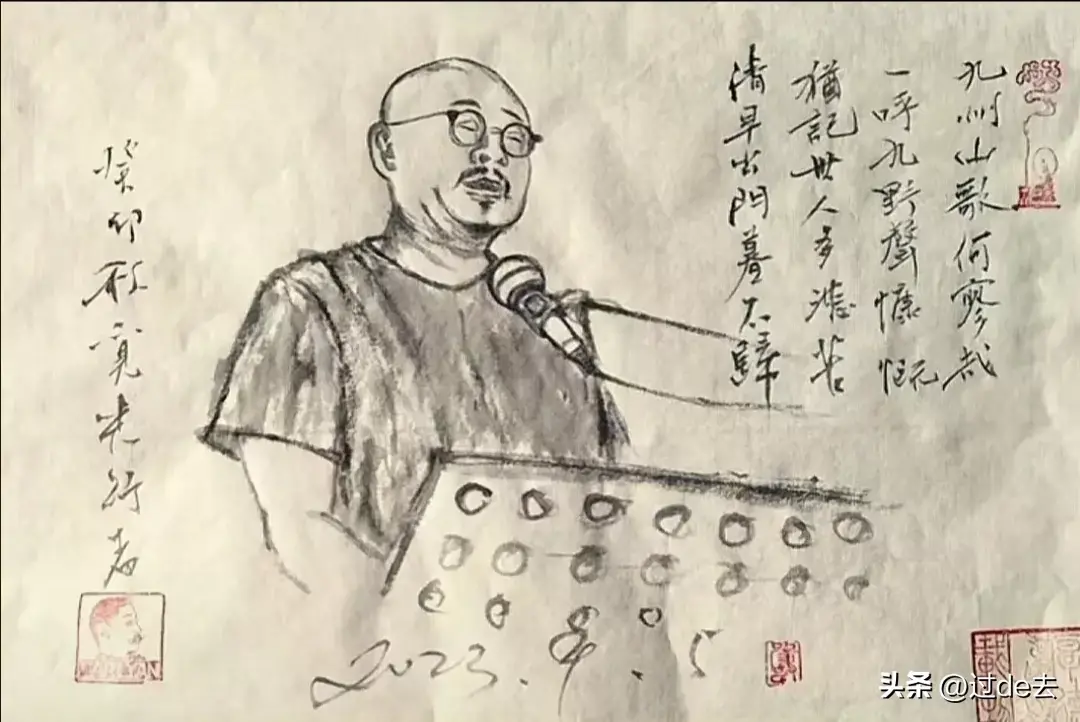 九州山歌何寥哉
一呼九野聲慷慨
猶記世人多悲苦
清早出門暮不歸
癸卯秋
行者
2023.
头条 @过de去